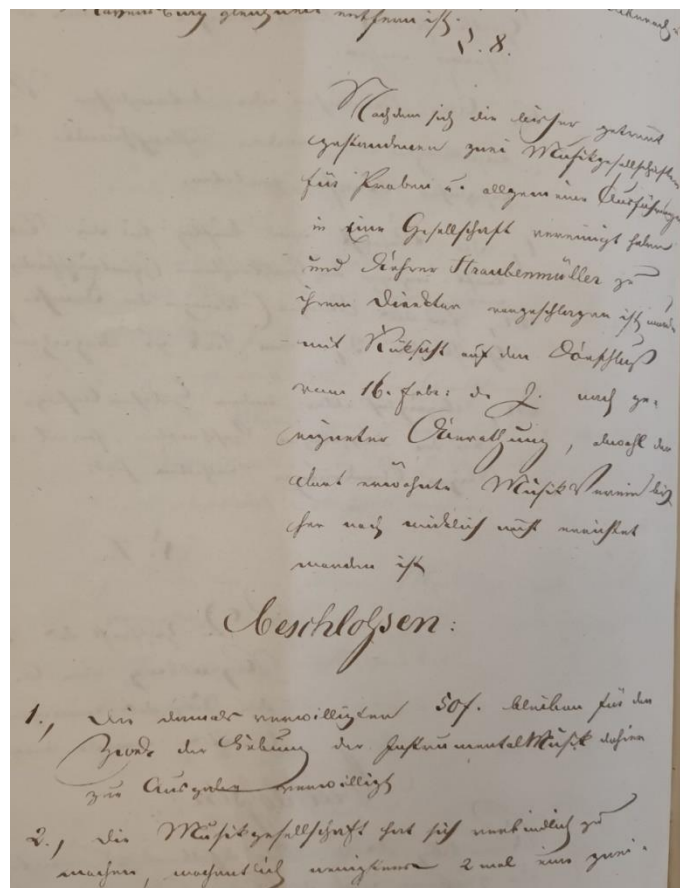 gleichweit entfernt ist.
§. 8.
Nachdem sich die bisher getrennt
gestandenen zwei Musikgesellschaften
für Proben u. allgemeine Ausführung
in Eine Gesellschaft vereinigt haben
und Lehrer Straubenmüller zu
ihrem Direktor vorgeschlagen ist, wurde
mit Rüksicht auf den Beschluß
vom 16. Febr: d. J. nach ge-
eigneter Berathung, obwohl der
dort erwähnte Musik Verein bis
her noch wirklich nicht errichtet
worden ist
Beschlossen:
1., Die damals verwilligten 50 f. bleiben für den
Zwek der Hebung der Instrumental Musik dahier
zur Ausgabe verwilligt
2., die Musikgesellschaft hat sich verbindlich zu
machen, wochentlich wenigstens 2 mal eine zwei-